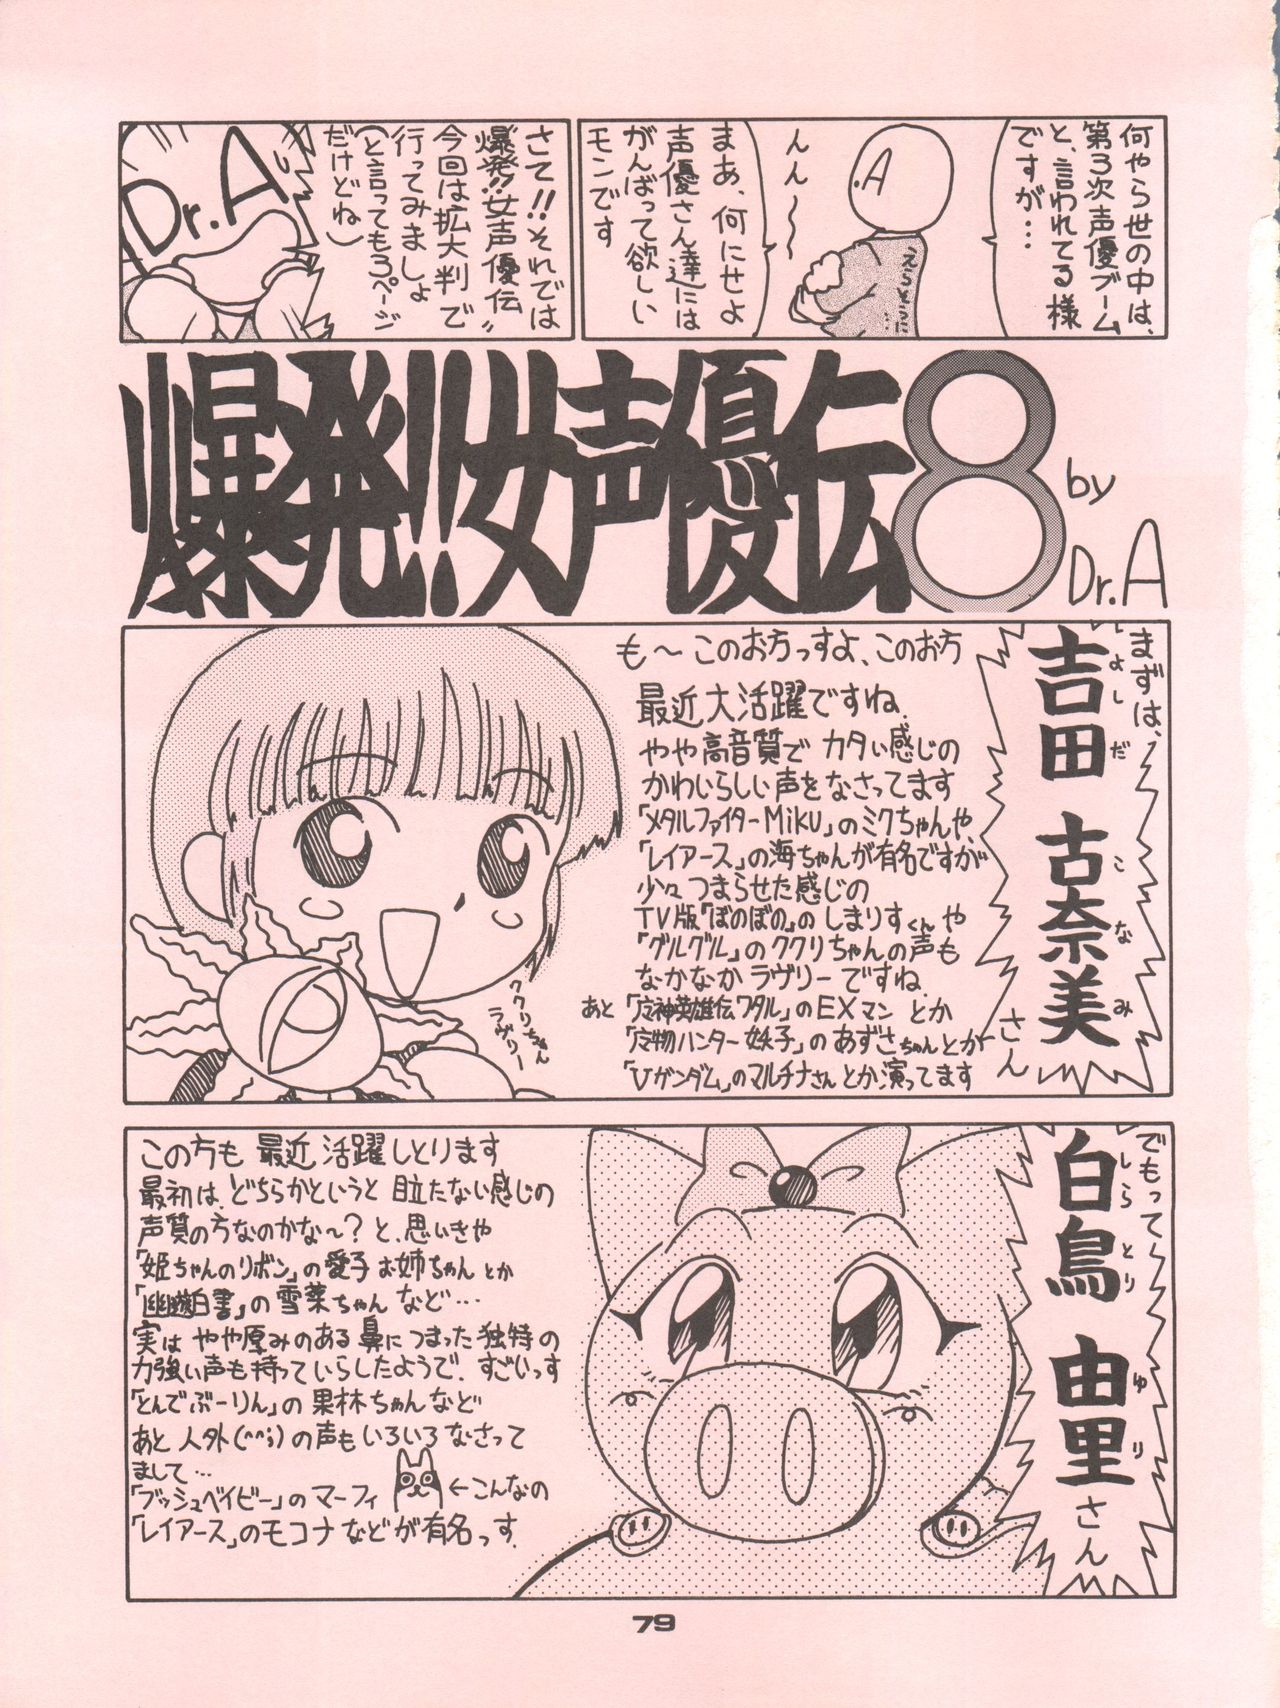 何やら世の中は、
第3次声優ブーム
と、言われてる様
ですが…
.A
んん〜〜
まあ、何にせよ
声優さん達には
がんばって欲しい
モンです
さて!!それでは
"爆発!!女声優伝"
今回は拡大判で
行ってみましょ
(と言っても3ページ
だけどね)
Dr.A
爆発!!女声優伝8
by
Dr.A
まずは、
吉田 古奈美さん
よしだ こなみ
も〜このお方っすよ、このお方
最近大活躍ですね.
やや高音質で カタい感じの
かわいらしい声をなさってます
「メタルファイターMiKU」のミクちゃんや、
「レイアース」の海ちゃんが有名ですが
少々つまらせた感じの
TV版『ぼのぼの』の しまりすくんや
「グルグル」のククリちゃんの声も
なかなか ラヴリーですね.
あと「魔神英雄伝ワタル」のEXマン とか
「魔物ハンター妖子」のあずさちゃんとか
「Vガンダム」のマルチナさんとか演ってます
ククリちゃん
ラヴリー
でもって
白鳥 由里さん
しらとり ゆり
この方も 最近 活躍しとります
最初は、どちらかというと 目立たない感じの
声質の方なのかな〜?と、思いきや
「姫ちゃんのリボン」の愛子お姉ちゃんとか
「幽遊白書」の雪菜ちゃんなど…
実は やや厚みのある鼻につまった独特の
力強い声も持っていらしたようで、すごいっす
「とんでぶーりん」の果林ちゃんなど
あと 人外(^^;)の声もいろいろなさって
まして…
「ブッシュベイビー」のマーフィ ←こんなの
「レイアース」のモコナなどが有名っす
79